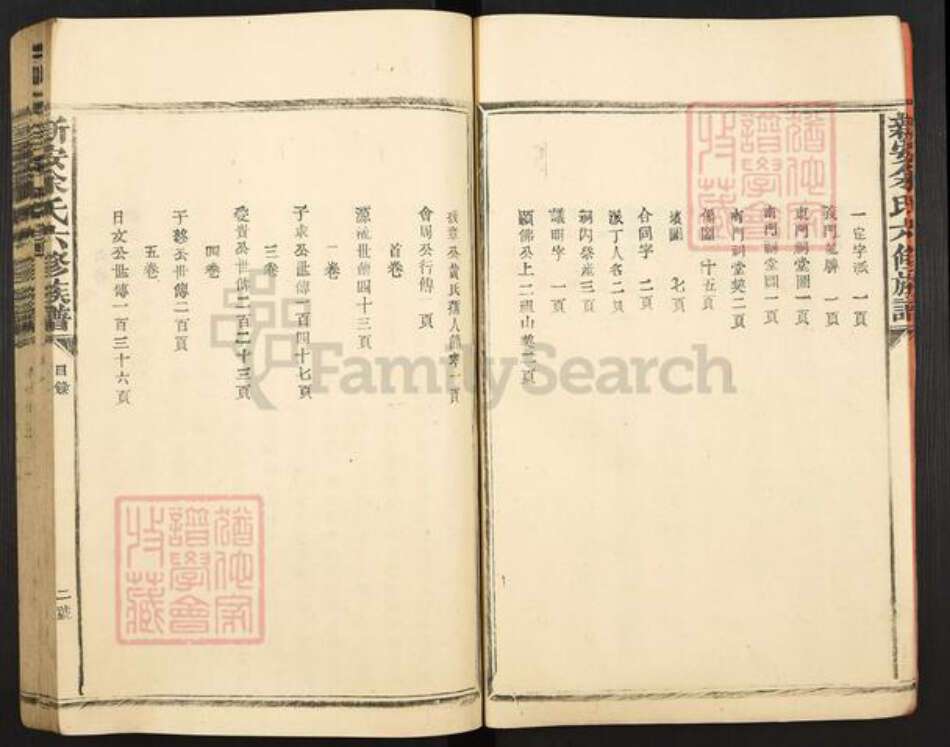 新安余氏六修族譜
一定字派 一頁
義門冕牌 一頁
東門祠堂圖一頁
南門祠堂圖一頁
南門祠堂契二頁
像圖 十五頁
墳圖 七頁
合同字 二頁
派丁人名二頁
祠內祭產三頁
議明字 一頁
顯佛公上二嶺山契二頁
會周公行傳一頁
首卷
源流世蘭四十三頁
一卷
子求公世傳一百四十七頁
三卷
受貴公世傳二百二十三頁
四卷
千移公世傳一百頁
五卷
日文公世傳一百三十六頁
新安余氏六修族譜
目錄
二號
FamilySearch
猶他家譜學會收藏
猶他家譜學會收藏